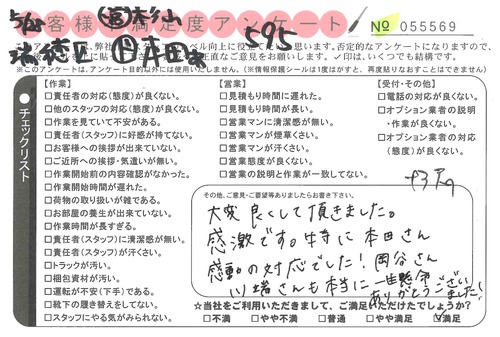 お客様満足度アンケート
№ 055569
595
※このアンケートは、アンケート目的以外には使用いたしません。(※情報保護シールは1度はがすと、再度貼りなおすことはできません)
チェックリスト
【作業】
□責任者の対応(態度)が良くない。
□他のスタッフの対応(態度)が良くない。
□作業を見ていて不安がある。
□責任者(スタッフ)に好感が持てない。
□お客様への挨拶が出来ていない。
□ご近所への挨拶・気遣いが無い。
□作業開始前の内容確認がなかった。
□作業開始時間が遅れた。
□荷物の取り扱いが雑である。
□お部屋の養生が出来ていない。
□作業時間が長すぎる。
□責任者(スタッフ)に清潔感が無い。
□責任者(スタッフ)が汗くさい。
□トラックが汚い。
□梱包資材が汚い。
□運転が不安(下手)である。
□靴下の履き替えをしてない。
□スタッフにやる気がみられない。
【営業】
□見積もり時間に遅れた。
□見積もり時間が長い。
□営業マンに清潔感が無い。
□営業マンが煙草くさい。
□営業マンが汗くさい。
□営業態度が良くない。
□営業の説明と作業が一致してない。
【受付・その他】
□電話の対応が良くない。
□オプション業者の説明
・作業が良くない。
□オプション業者の対応
(態度)が良くない。
その他、ご意見・ご要望等ありましたらお書き下さい。
大変良くして頂きました。
感激です。特に本田さん
感動の対応でした!岡谷さん
川端さんも本当に一生懸命
ありがとうございました!
☆当社をご利用いただきまして、ご満足いただけたでしょうか?
□不満 □やや不満 □普通 □やや満足 ☑満足